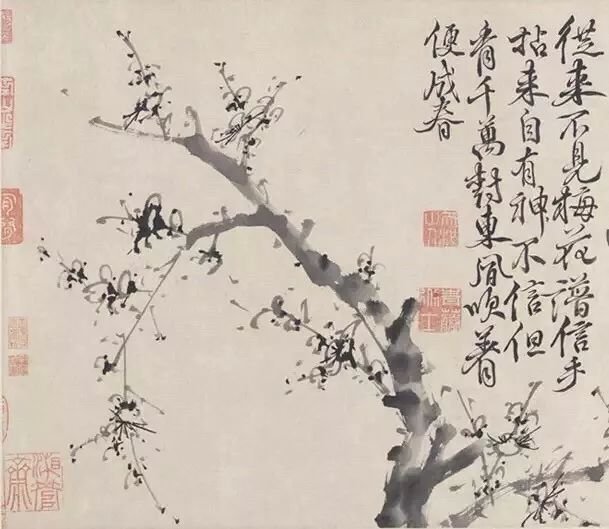 從來不見梅花譜信手
拈來自有神不信但
看千萬樹東風吹着
便成春
湘管
齋